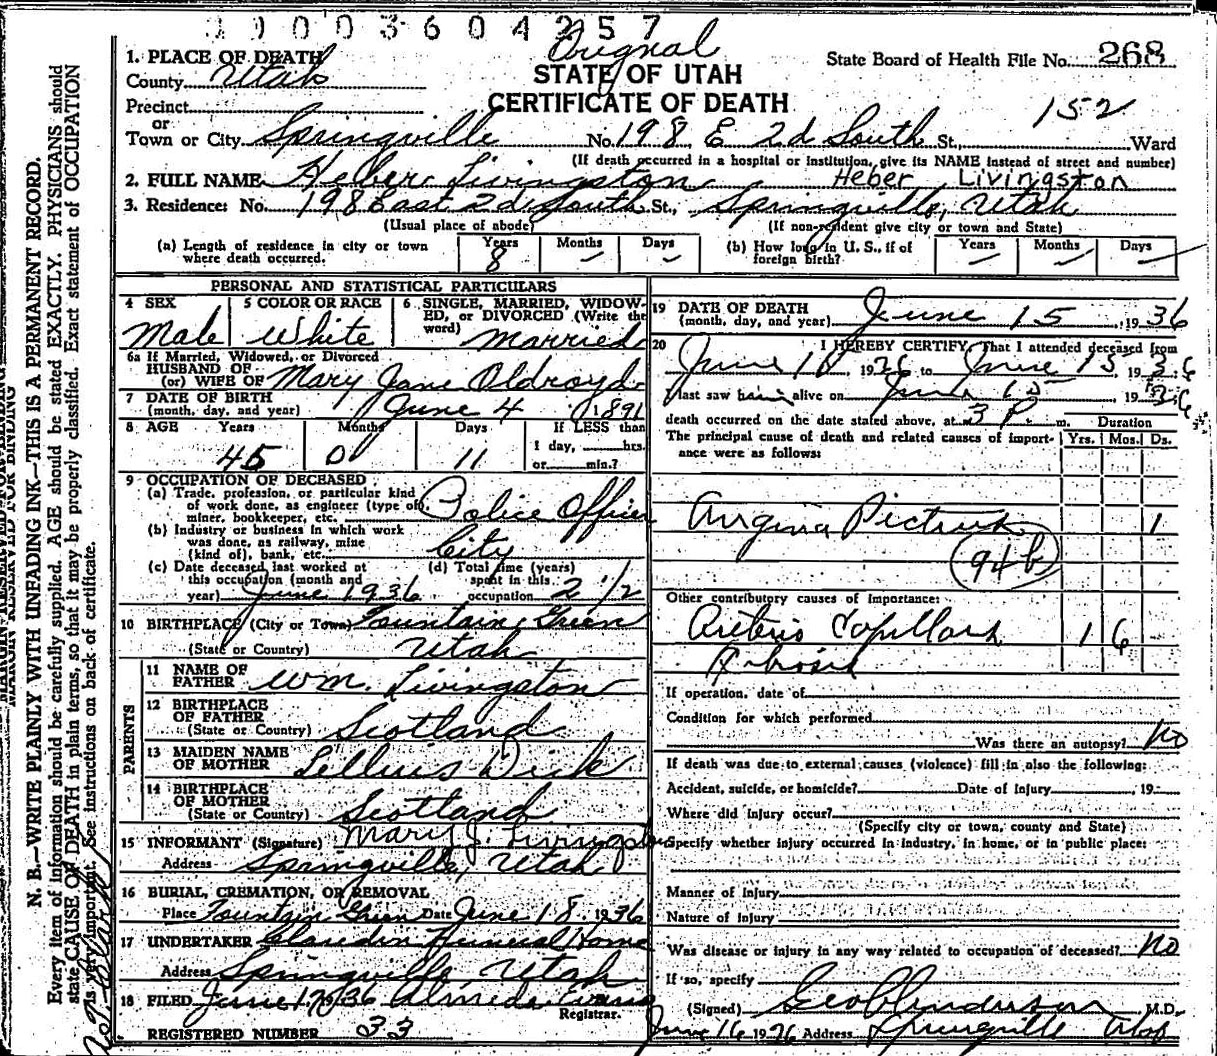 19003604257
Original
1. PLACE OF DEATH
County Utah
STATE OF UTAH
CERTIFICATE OF DEATH
State Board of Health File No. 268
Precinct
or
152
Town or City Springville No. 198 E 2d South St., Ward
(If death occurred in a hospital or institution, give its NAME instead of street and number)
2. FULL NAME Heber Livingston Heber Livingston
3. Residence: No. 198 East 2d South St., Springville, Utah
(Usual place of abode) (If non-resident give city or town and State)
(a) Length of residence in city or town where death occurred. Years 8 Months — Days —
(b) How long in U. S., if of foreign birth? Years — Months — Days —
PERSONAL AND STATISTICAL PARTICULARS
4 SEX Male
5 COLOR OR RACE White
6 SINGLE, MARRIED, WIDOWED, or DIVORCED (Write the word) Married
6a If Married, Widowed, or Divorced
HUSBAND OF
(or) WIFE OF Mary Jane Oldroyd
7 DATE OF BIRTH
(month, day, and year) June 4 1891
8 AGE Years 45 Months 0 Days 11 If LESS than
1 day, hrs.
or min.?
9 OCCUPATION OF DECEASED
(a) Trade, profession, or particular kind
of work done, as engineer (type of),
miner, bookkeeper, etc. Police Officer
(b) Industry or business in which work
was done, as railway, mine
(kind of), bank, etc. City
(c) Date deceased last worked at
this occupation (month and
year) June 1936
(d) Total time (years)
spent in this
occupation 2 1/2
10 BIRTHPLACE (City or Town) Fountain Green
(State or Country) Utah
PARENTS
11 NAME OF
FATHER Wm. Livingston
12 BIRTHPLACE
OF FATHER
(State or Country) Scotland
13 MAIDEN NAME
OF MOTHER Lillius Dick
14 BIRTHPLACE
OF MOTHER
(State or Country) Scotland
15 INFORMANT (Signature) Mary J. Livingston
Address Springville, Utah
16 BURIAL, CREMATION, OR REMOVAL
Place Fountain Green Date June 18 1936
17 UNDERTAKER Claredin Funeral Home
Address Springville Utah
18 FILED June 17, 1936 Almeda Evans
Registrar.
REGISTERED NUMBER 33
19 DATE OF DEATH
(month, day, and year) June 15, 1936
20 I HEREBY CERTIFY, That I attended deceased from
June 1936 to June 15 1936
I last saw him alive on June 15 1936
death occurred on the date stated above, at 3 P. m. Duration
The principal cause of death and related causes of importance were as follows: Yrs. Mos. Ds.
Angina Pectoris 1
94b
Other contributory causes of importance:
Arterio Capillary 1 6
Fibrosis
If operation, date of
Condition for which performed
Was there an autopsy? No
If death was due to external causes (violence) fill in also the following:
Accident, suicide, or homicide? Date of Injury 19
Where did injury occur?
(Specify city or town, county and State)
Specify whether injury occurred in industry, in home, or in public place:
Manner of Injury
Nature of Injury
Was disease or injury in any way related to occupation of deceased? No
If so, specify
(Signed) Geo Anderson M.D.
June 16 1936 Address Springville Utah
MARGIN RESERVED FOR BINDING
N. B.—WRITE PLAINLY WITH UNFADING INK—THIS IS A PERMANENT RECORD.
Every item of information should be carefully supplied. AGE should be stated EXACTLY. PHYSICIANS should
state CAUSE OF DEATH in plain terms, so that it may be properly classified. Exact statement of OCCUPATION
is very important. See instructions on back of certificate.